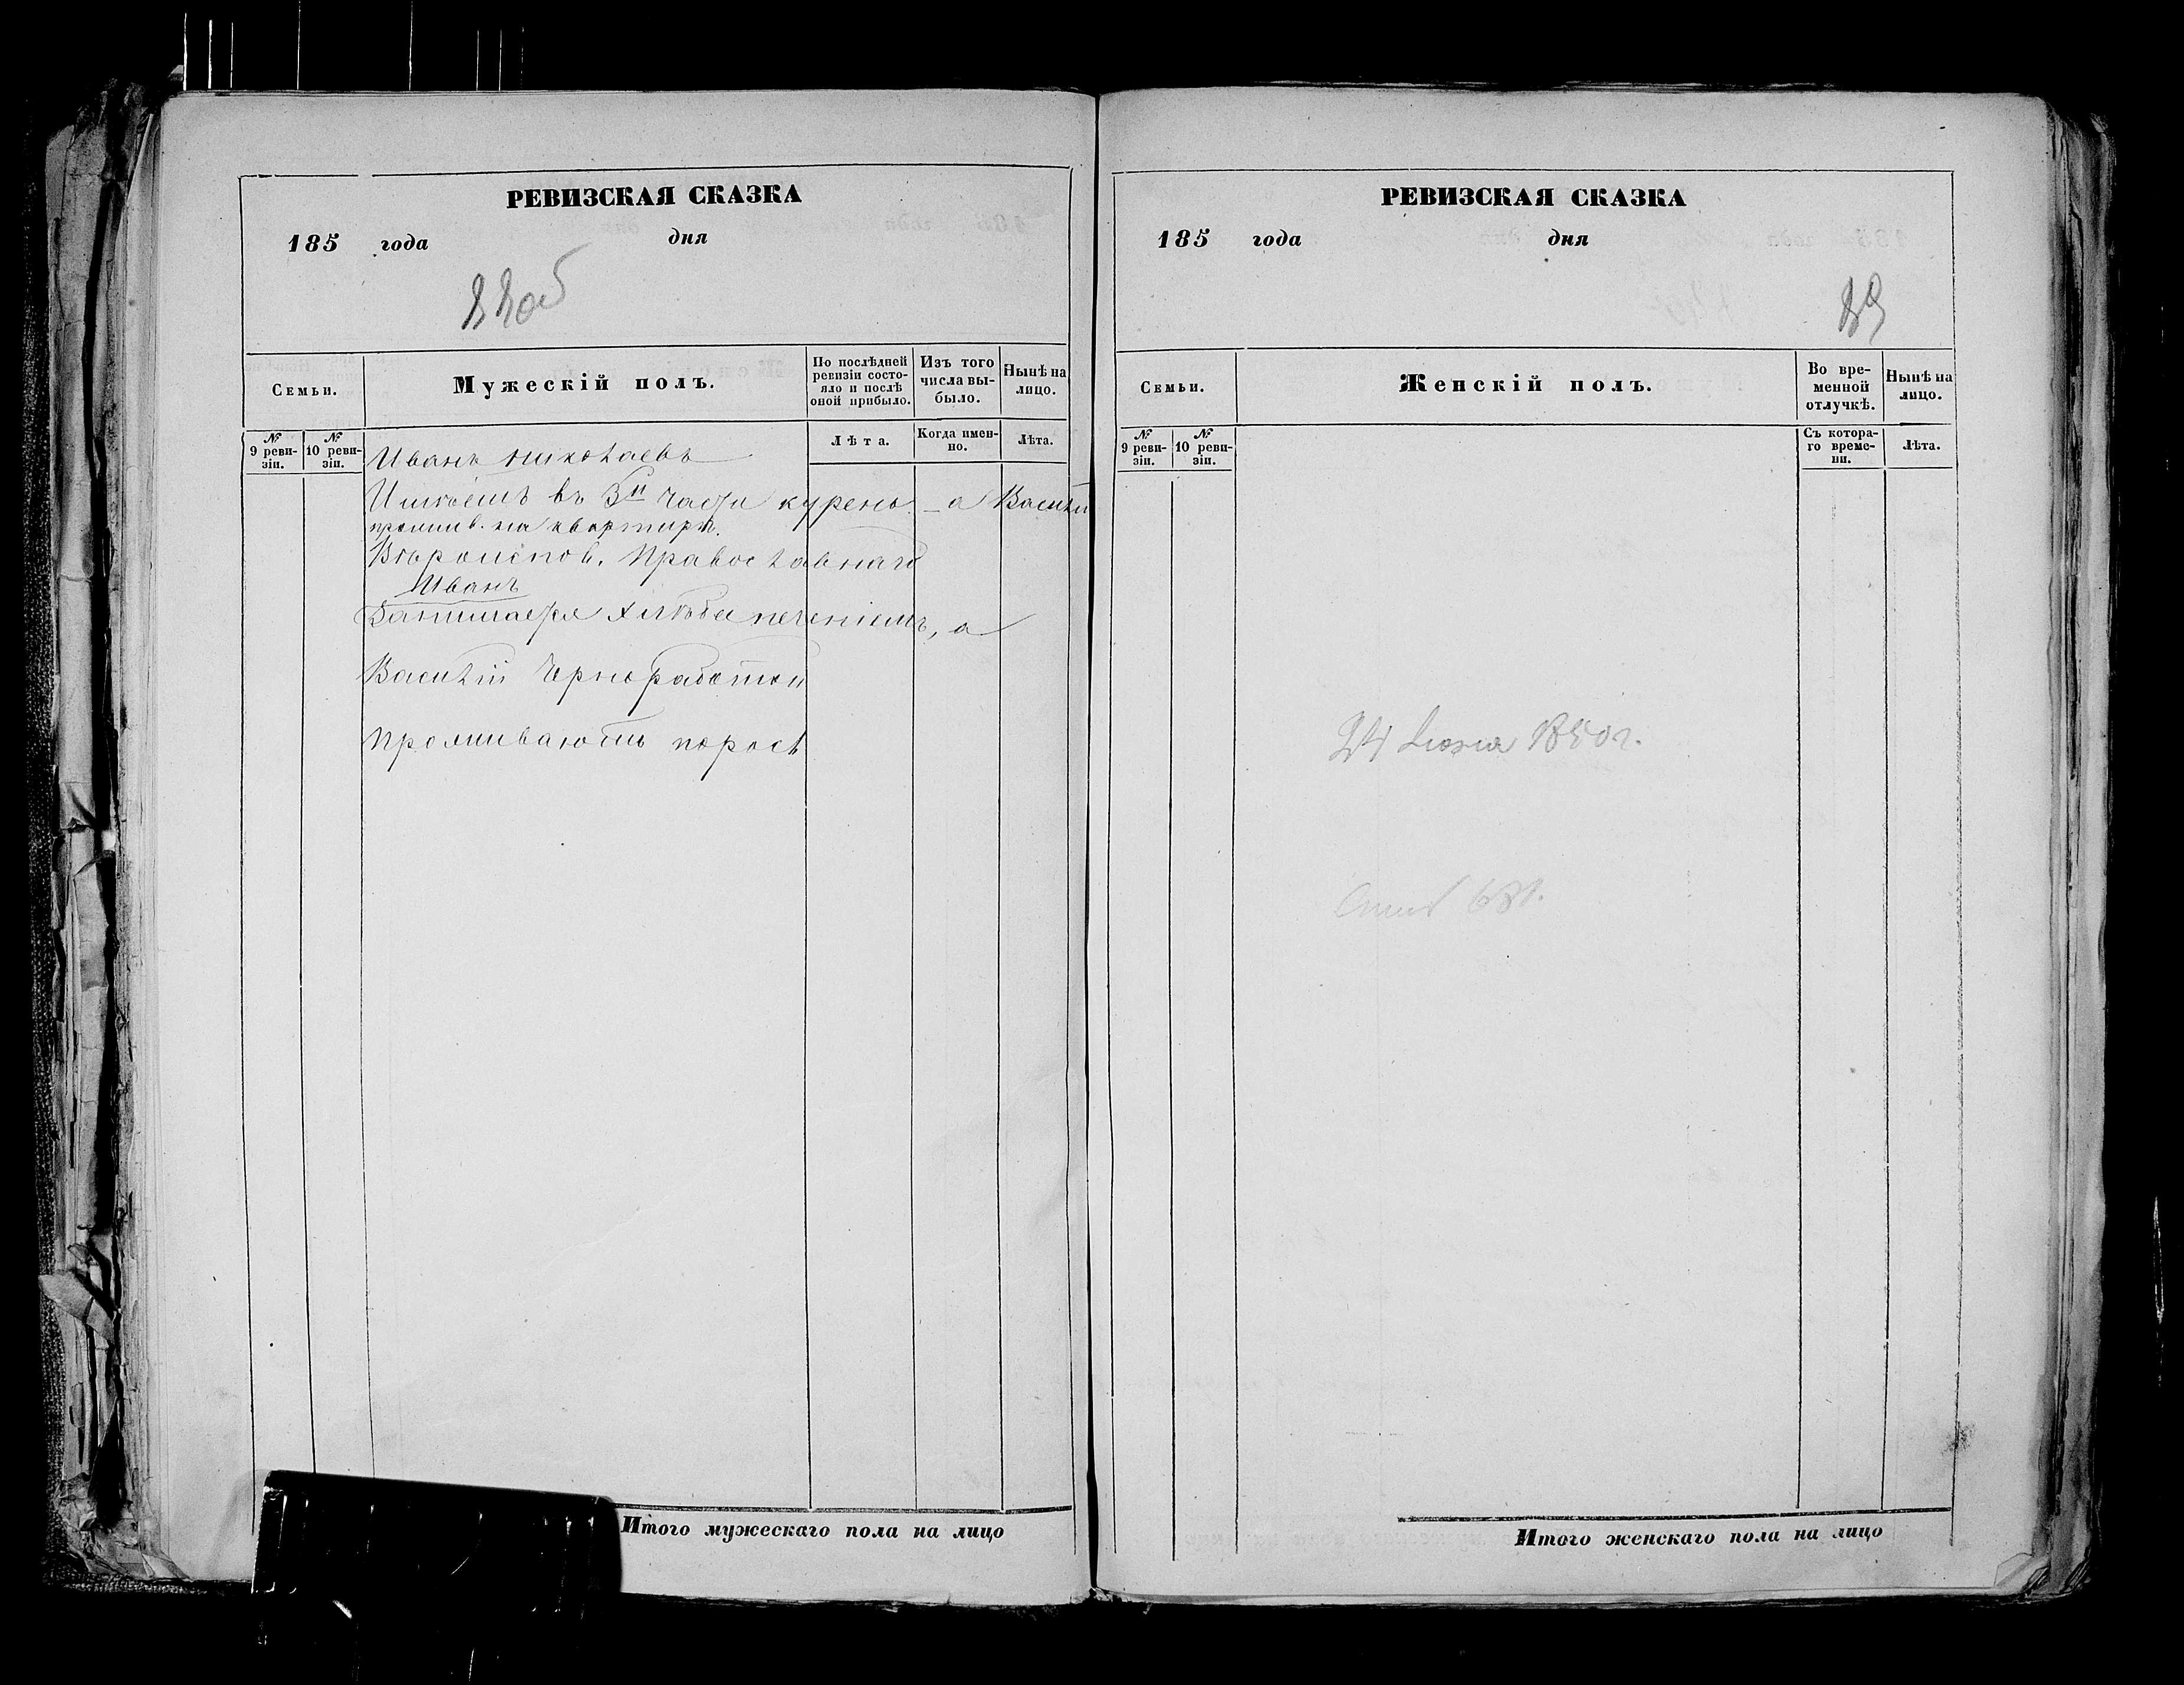 РЕВИЗСКАЯ СКАЗКА
185 года дня
88об
Семьи.
Мужескій полъ.
По послѣдней ревизіи состояло и послѣ оной прибыло.
Изъ того числа выбыло.
Нынѣ на лицо.
№ 9 ревизіи.
№ 10 ревизіи.
Лѣта.
Когда именно.
Лѣта.
Иванъ Николаевъ
Имѣетъ въ 3й части курень – а Василій
прожив. на квартирѣ.
Вѣроиспов. Православнаго
Иванъ
Занимается хлѣбопеченіемъ, а
Василій Чернработой
Проживаютъ порось
Итого мужескаго пола на лицо
РЕВИЗСКАЯ СКАЗКА
185 года дня
89
Семьи.
Женскій полъ.
Во временной отлучкѣ.
Нынѣ на лицо.
№ 9 ревизіи.
№ 10 ревизіи.
Съ котораго времени.
Лѣта.
1850 г.
Итого женскаго пола на лицо